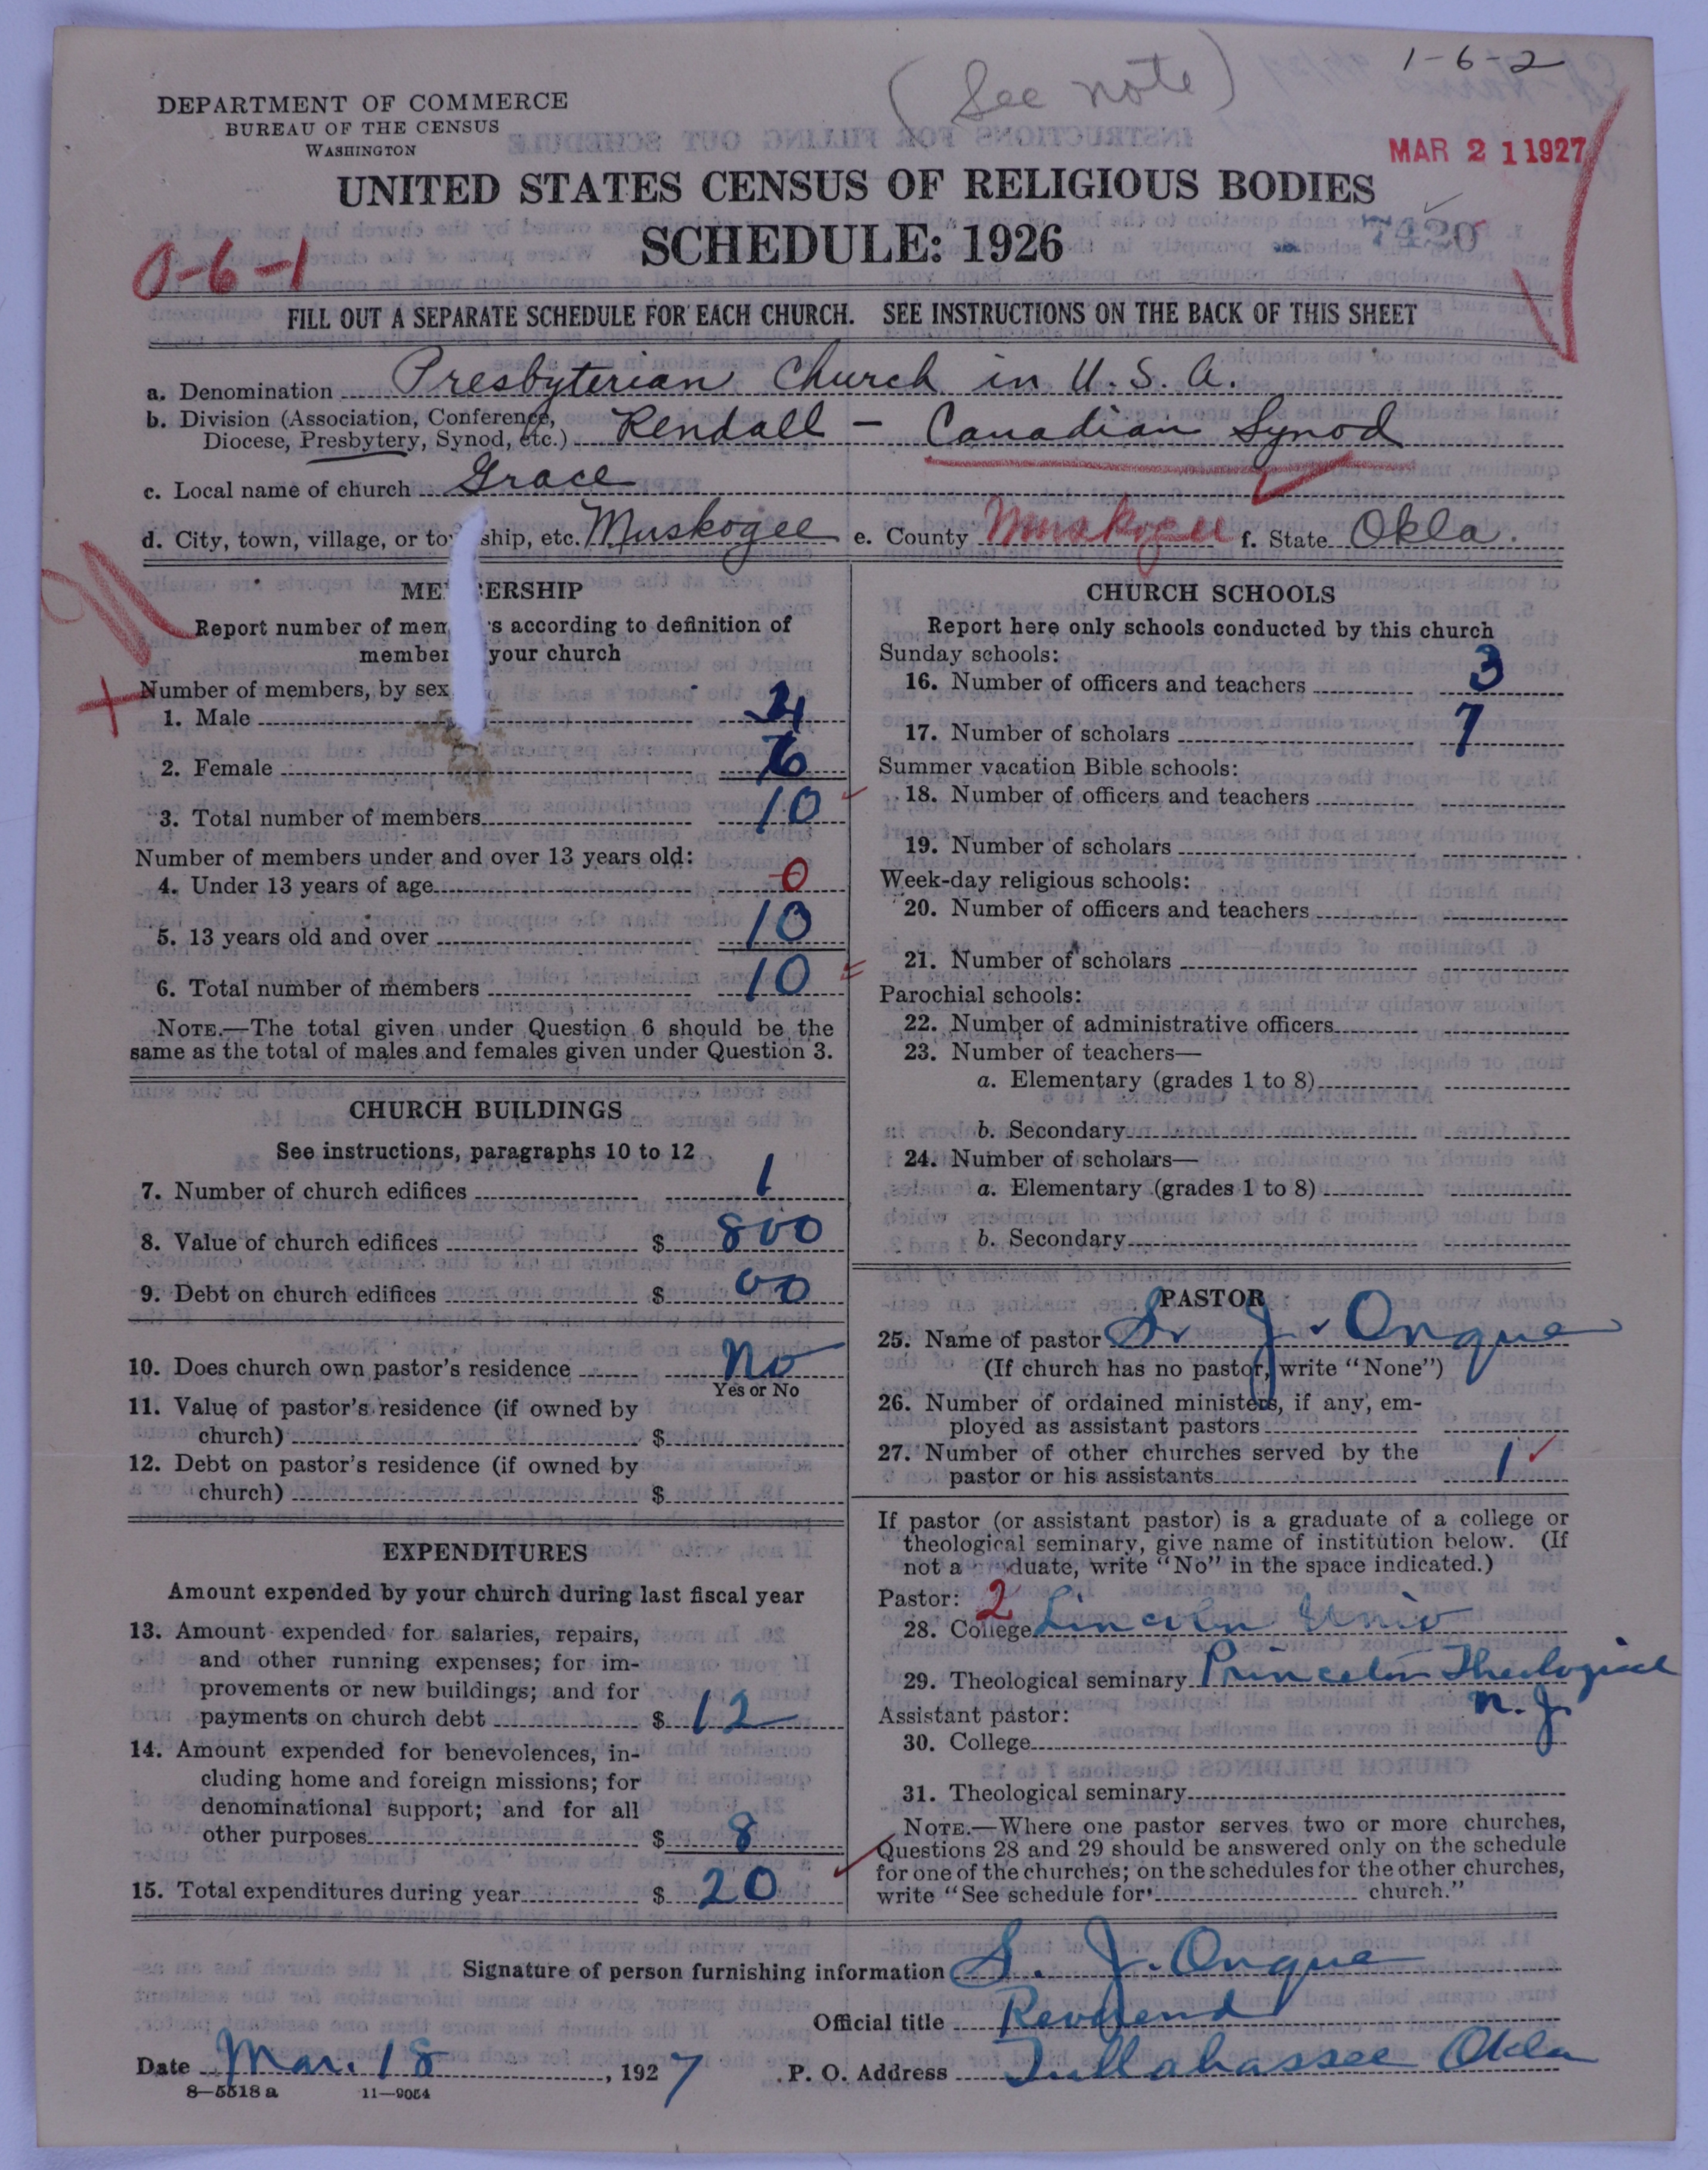 (See note)
1-6-2
DEPARTMENT OF COMMERCE
BUREAU OF THE CENSUS
WASHINGTON
MAR 21 1927
UNITED STATES CENSUS OF RELIGIOUS BODIES
SCHEDULE: 1926
7420
0-6-1
FILL OUT A SEPARATE SCHEDULE FOR EACH CHURCH. SEE INSTRUCTIONS ON THE BACK OF THIS SHEET
a. Denomination Presbyterian Church in U.S.A.
b. Division (Association, Conference,
Diocese, Presbytery, Synod, etc.) Rendall - Canadian Synod
c. Local name of church Grace
d. City, town, village, or to ship, etc. Muskogee e. County Muskogee f. State Okla.
ME ERSHIP
Report number of mem s according to definition of
member your church
Number of members, by sex
1. Male 4
2. Female 6
3. Total number of members 10
Number of members under and over 13 years old:
4. Under 13 years of age 0
5. 13 years old and over 10
6. Total number of members 10
NOTE.—The total given under Question 6 should be the
same as the total of males and females given under Question 3.
CHURCH BUILDINGS
See instructions, paragraphs 10 to 12
7. Number of church edifices 1
8. Value of church edifices $ 800
9. Debt on church edifices $ 00
10. Does church own pastor's residence No
Yes or No
11. Value of pastor's residence (if owned by
church) $
12. Debt on pastor's residence (if owned by
church) $
EXPENDITURES
Amount expended by your church during last fiscal year
13. Amount expended for salaries, repairs,
and other running expenses; for im-
provements or new buildings; and for
payments on church debt $ 12
14. Amount expended for benevolences, in-
cluding home and foreign missions; for
denominational support; and for all
other purposes $ 8
15. Total expenditures during year $ 20
CHURCH SCHOOLS
Report here only schools conducted by this church
Sunday schools:
16. Number of officers and teachers 3
17. Number of scholars 7
Summer vacation Bible schools:
18. Number of officers and teachers
19. Number of scholars
Week-day religious schools:
20. Number of officers and teachers
21. Number of scholars
Parochial schools:
22. Number of administrative officers
23. Number of teachers—
a. Elementary (grades 1 to 8)
b. Secondary
24. Number of scholars—
a. Elementary (grades 1 to 8)
b. Secondary
PASTOR
25. Name of pastor S. J. Onque
(If church has no pastor, write "None")
26. Number of ordained ministers, if any, em-
ployed as assistant pastors
27. Number of other churches served by the
pastor or his assistants 1
If pastor (or assistant pastor) is a graduate of a college or
theological seminary, give name of institution below. (If
not a graduate, write "No" in the space indicated.)
Pastor: 2
28. College Lincoln Univ
29. Theological seminary Princeton Theological
N.J.
Assistant pastor:
30. College
31. Theological seminary
NOTE.—Where one pastor serves two or more churches,
Questions 28 and 29 should be answered only on the schedule
for one of the churches; on the schedules for the other churches,
write "See schedule for church."
Signature of person furnishing information S. J. Onque
Official title Reverend
Date Mar. 18, 1927 P. O. Address Tullahassee Okla
8—5518 a 11—9054